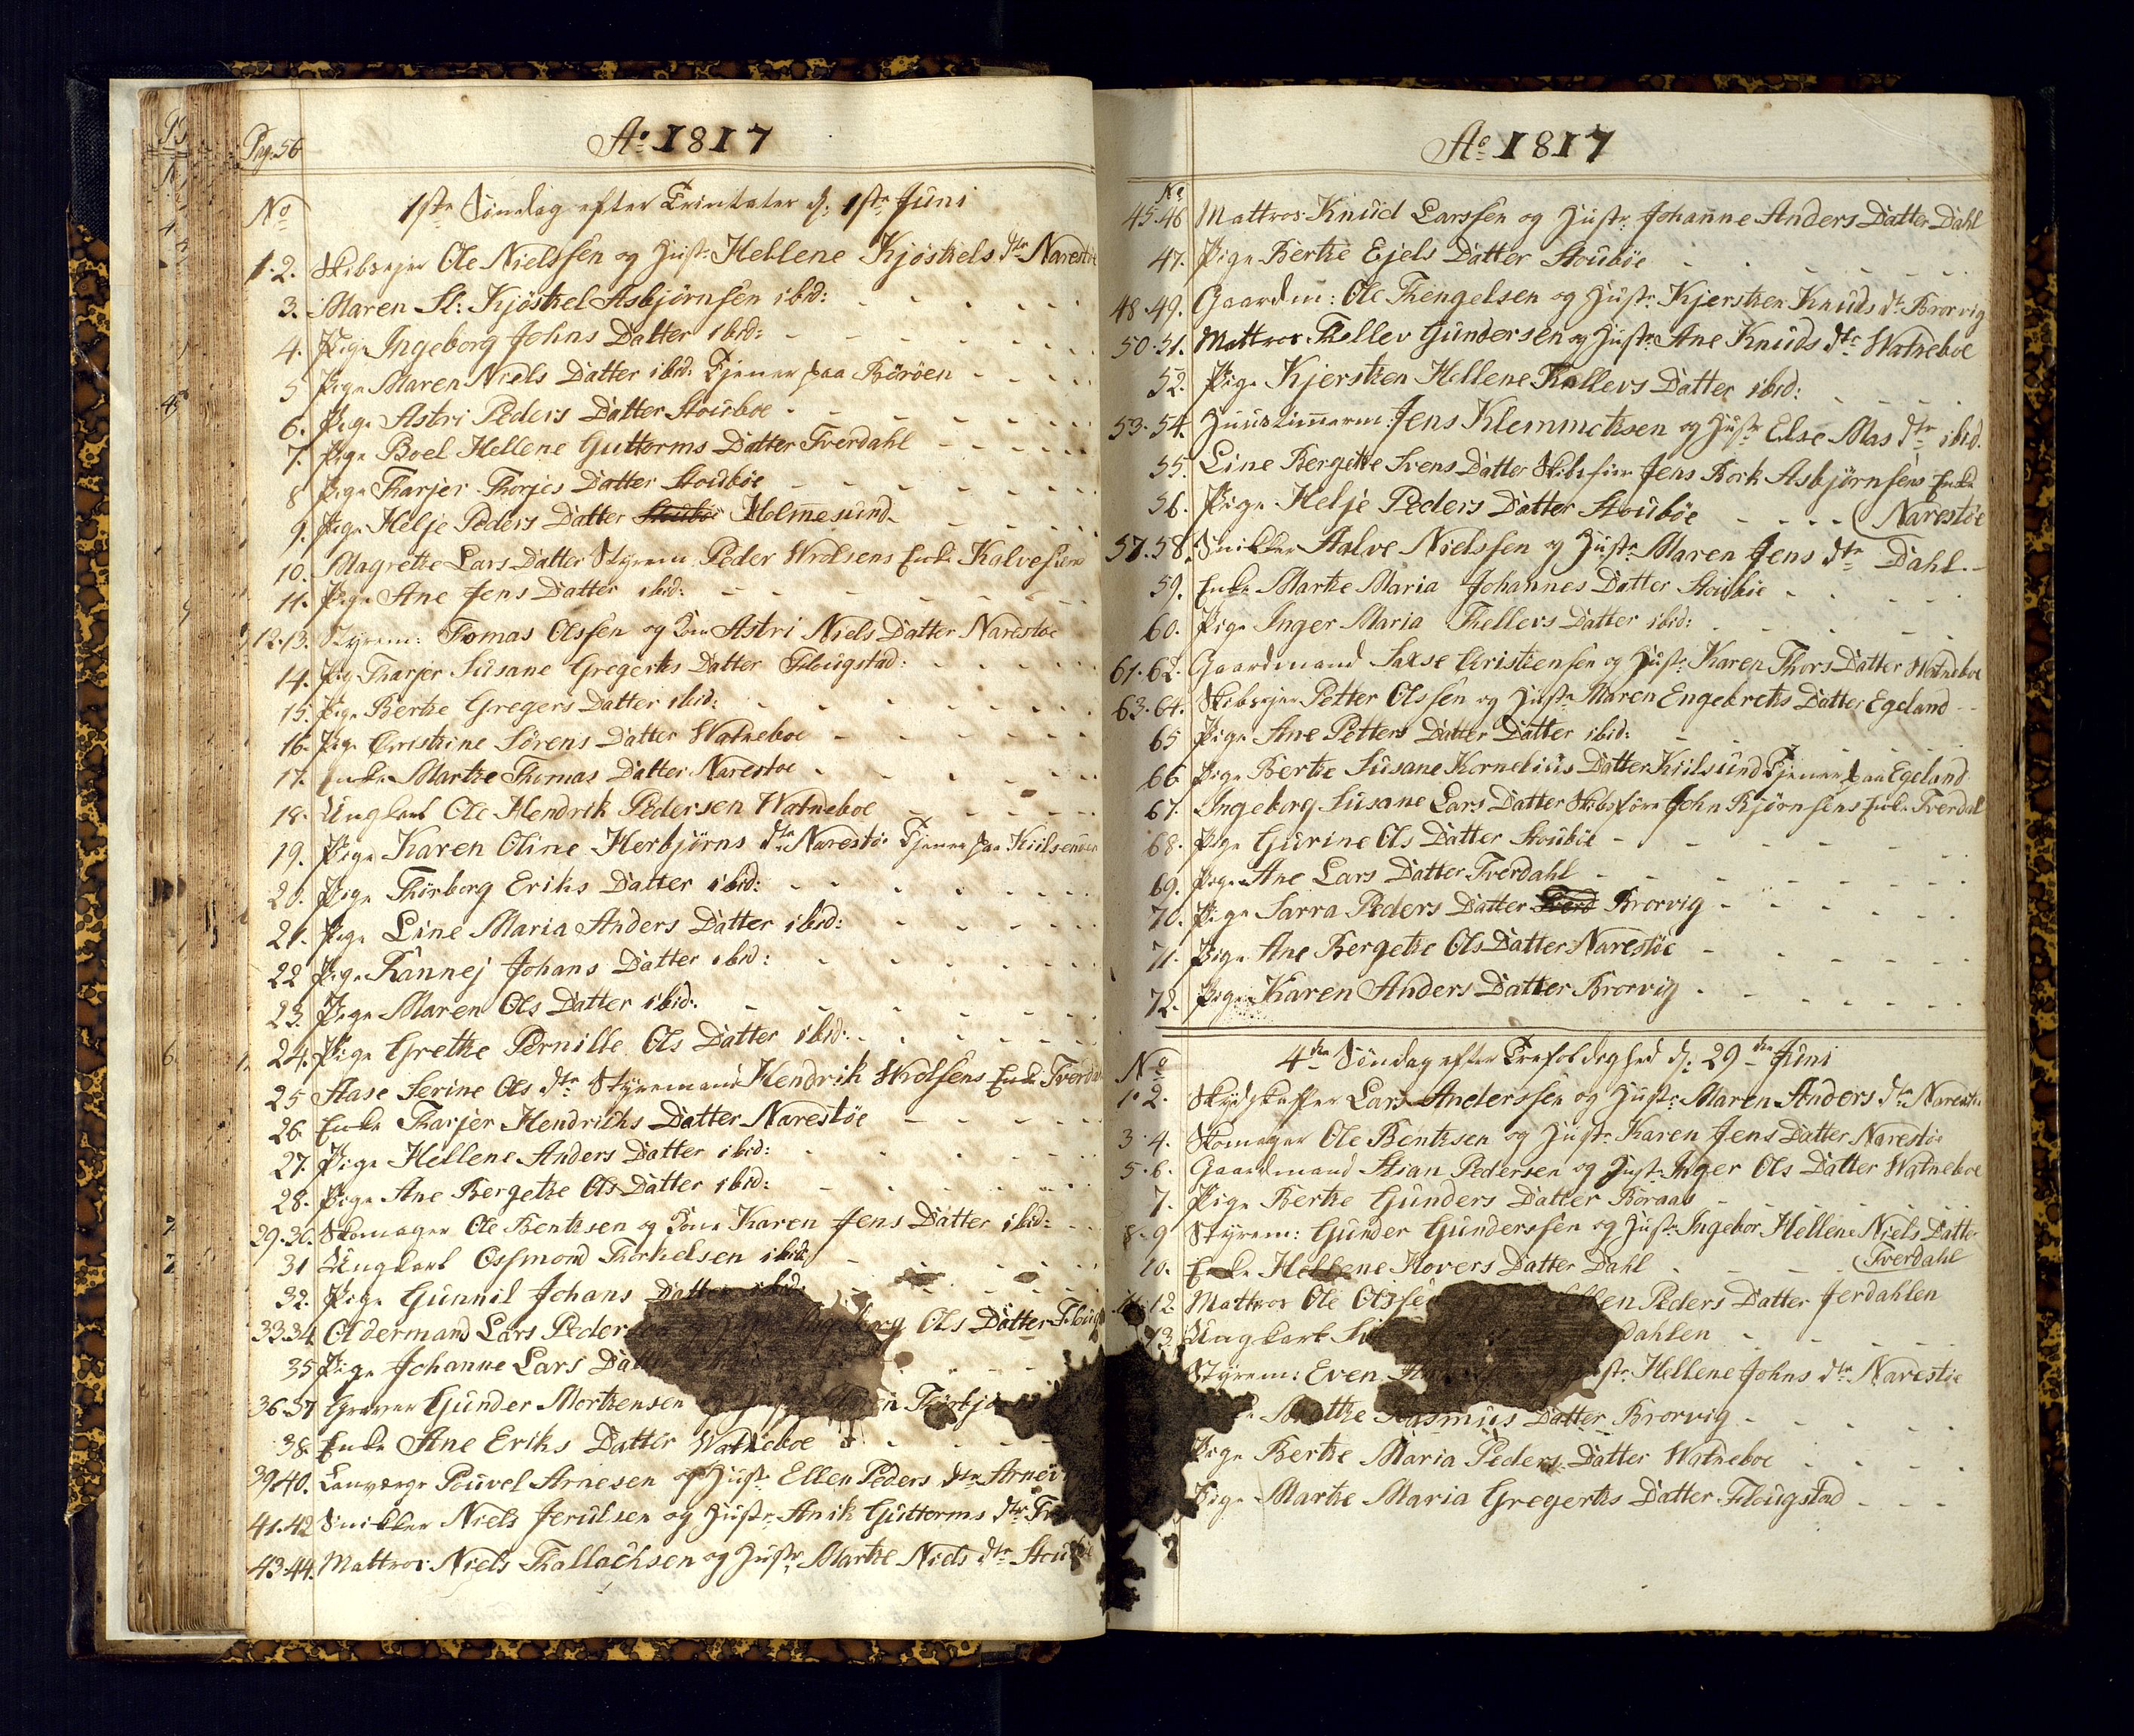 Pag. 56
Ao 1817
No
1ste Søndag efter Trinitater d: 1ste Juni
1.2. Skibsejer Ole Nielssen og Hustr Hellene Kjöstels dtr Narestöe
3. Maren Sl: Kjöstel Asbjörnsen ibid:
4. Pige Ingeborg Johns Datter ibid:
5 Pige Maren Niels Datter ibid: Tjener paa Böröen
6. Pige Astri Peders Datter Stouböe
7. Pige Boel Hellene Guttorms Datter Tverdahl
8 Pige Tharjer Thorjes Datter Stouböe
9. Pige Helje Peders Datter Stouböe Holmesund
10. Magrette Lars Datter Styrem Peder Wrolsens Enke
11. Pige Ane Jens Datter ibid:
12.13. Styrem: Thomas Olssen og Kone Astri Niels Datter Narestöe
14. Pig Tharjer Susane Gregerts Datter Flougstad:
15. Pige Berthe Gregers Datter ibid:
16. Pige Christine Sörens Datter Watneboe
17. Enke Marthe Thomas Datter Narestoe
18. Ungkarl Ole Hendrik Pedersen Watneboe
19. Pige Karen Oline Herbjörns dtr Narestöe Tjener paa
20. Pige Thörborg Eriks Datter ibid:
21. Pige Line Maria Anders Datter ibid:
22 Pige Rannej Johans Datter ibid:
23. Pige Maren Ols Datter ibid:
24. Pige Grethe Pernille Ols Datter ibid:
25 Aase Serine Ols dtr Styremand Hendrik Wrolsens Enke
26. Enke Tharjer Hendriks Datter Narestöe
27. Pige Hellene Anders Datter ibid:
28. Pige Ane Bergethe Ols Datter ibid:
29.30. Skomager Ole Bentsen og Kone Karen Jens Datter ibid:
31 Ungkarl Ossmond Thorkelsen ibid:
32. Pige Gunnil Johans Datter ibid:
33.34. Oldermand Lars Ols Datter
35 Pige Johanne Lars
36.37 Graver Gunder Mortensen
38. Enke Ane Eriks Datter Watneboe
39.40. Lanværge Pouvel Arnesen og Hustr Ellen Peders dtr
41.42 Snikker Niels Jerulsen og Hustr Anik Guttorms dtr
43.44. Mattros Niels Thallachsen og Hustr Marthe Niels dtr
Ao 1817
No
45.46 Mattros Knud Larssen og Hustr Johanne Anders Datter Dahl
47. Pige Berthe Ejels Datter Stouböe
48.49. Gaardm: Ole Thengelsen og Hustr Kjersten Knuds dtr Brorvig
50.51. Mattros Thellev Gundersen og Hustr Ane Knuds dtr Watneboe
52. Pige Kjersten Hellene Thellevs Datter ibid:
53.54. Huustimerm: Jens Klemmetsen og Hustr Else Mas dtr ibid.
55. Line Bergethe Svens Datter Skibsfører Jens Bork Asbjörnsens Enke
56. Pige Helje Peders Datter Stouböe (Narestöe
57.58. Snikker Aalve Nielssen og Hustr Maren Jens dtr Dahl.
59. Enke Marthe Maria Johannes Datter Stouböe
60. Pige Inger Maria Thellevs Datter ibid:
61.62. Gaardmand Saxse Christensen og Hustr Karen Thors Datter Watneboe
63.64. Skibsejer Petter Olssen og Hustr Maren Engebrets Datter Egeland
65 Pige Ane Petters Datter Datter ibid:
66 Pige Berthe Susane Kornelius Datter Kiilsund Tjener paa Egeland
67. Ingeborg Susane Lars Datter Skibsfører John Bjiörnsens Enke Tverdal
68. Pige Gurine Ols Datter Stouböe
69. Pige Ane Lars Datter Tverdahl
70. Pige Sarra Peders Datter Tverd Brorvig
71. Pige Ane Bergethe Ols Datter Narestöe
72. Pige Karen Anders Datter Brorvig
No
4de Søndag efter Trefoldighed d: 29de Juni
1.2. Skydskaffer Lars Anderssen og Hustr Maren Anders dtr
3.4. Skomager Ole Bentsen og Hustr Karen Jens Datter Narestöe
5.6. Gaardmand Stian Pedersen og Hustr Inger Ols Datter Watneboe
7. Pige Berthe Gunders Datter Boraas
8.9 Styrem: Gunder Gunderssen og Hustr Ingebor Hellene Niels Datter
10. Enke Hellene Hovers Datter Dahl (Tverdahl
12 Mattros Ole Peders Datter Jerdahlen
13. Ungkarl
Styrem: Even Hellene Johns dtr Narestöe
Rasmus Datter Brorvig
Pige Berthe Maria Peders Datter Watneboe
Pige Marthe Maria Gregerts Datter Flougstad